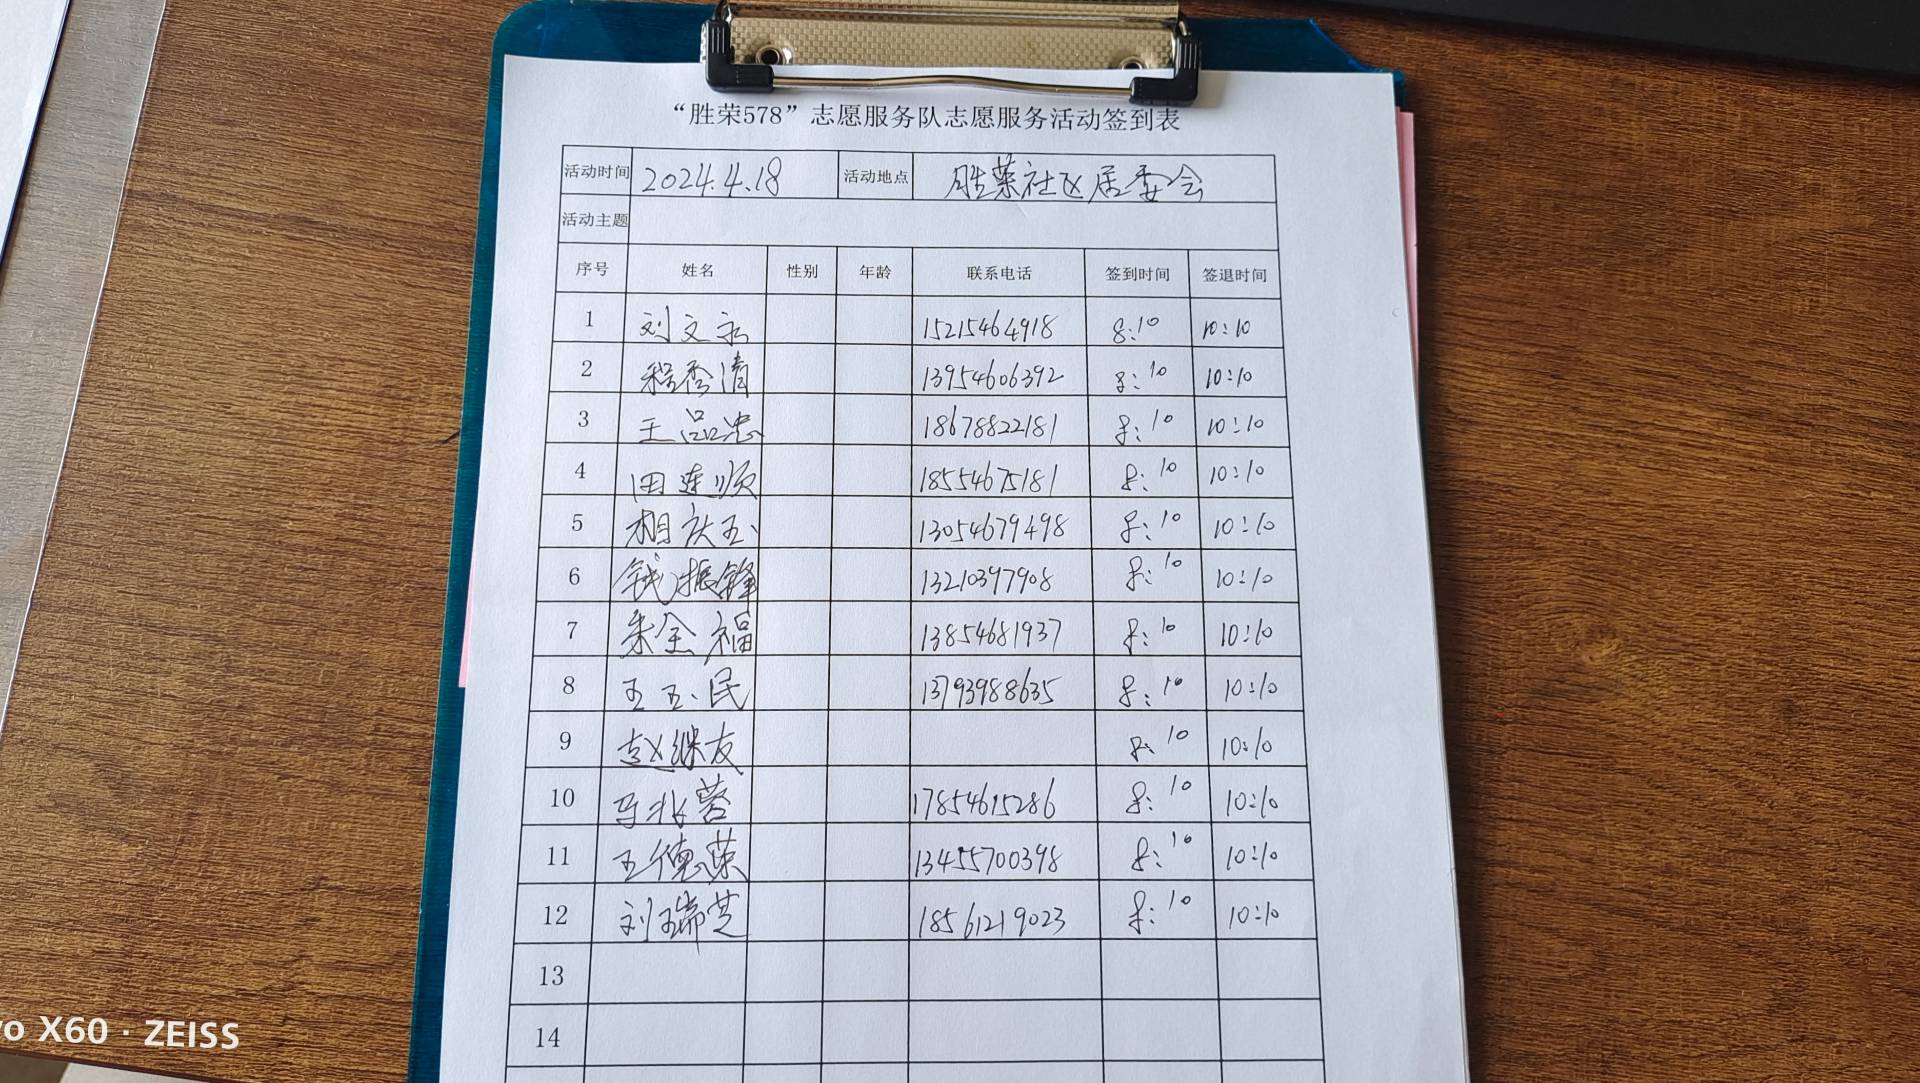 “胜荣578”志愿服务队志愿服务活动签到表
活动时间 2024.4.18 活动地点 胜荣社区居委会
活动主题
序号 姓名 性别 年龄 联系电话 签到时间 签退时间
1 刘文 15215464918 8:10 10:10
2 程秀清 13954606392 8:10 10:10
3 王品忠 18678822181 8:10 10:10
4 田莲顺 18554675181 8:10 10:10
5 相庆玉 13054679498 8:10 10:10
6 钱振锋 13210397908 8:10 10:10
7 朱全福 13854681937 8:10 10:10
8 王玉民 13793988635 8:10 10:10
9 赵继友 8:10 10:10
10 马兆蓉 17854615286 8:10 10:10
11 王德荣 13455700398 8:10 10:10
12 刘瑞芝 18561219023 8:10 10:10
13
14
o X60 · ZEISS